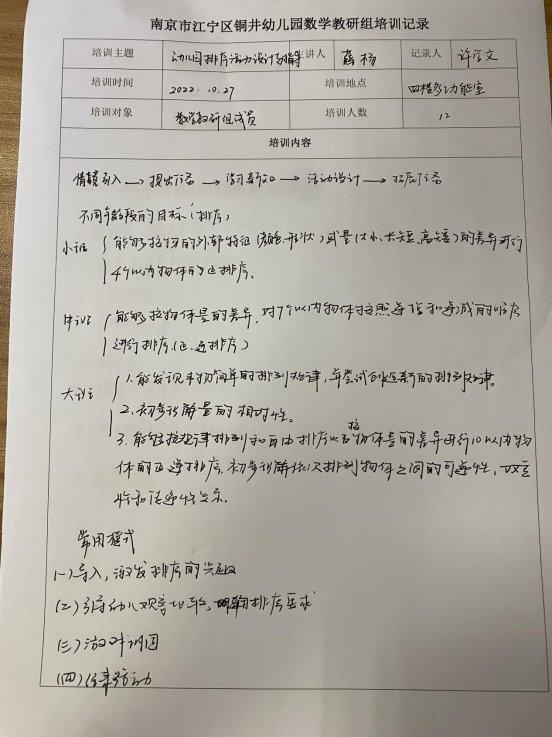 南京市江宁区铜井幼儿园数学教研组培训记录
培训主题 幼儿园排序活动设计与指导 主讲人 薛杨 记录人 许学文
培训时间 2022.10.27 培训地点 四楼多功能室
培训对象 数学教研组成员 培训人数 12
培训内容
情境引入→提出任务→学习新知→活动设计→拓展任务
不同年龄段的目标(排序)
小班 能够按物的外部特征(颜色、形状)或量(大小、长短、高矮)的差异进行
4个以内物体的正排序。
中班 能够按物体量的差异,对7个以内物体按照递增和递减的顺序
进行排序(正、逆排序)
大班 1.能发现事物简单的排列规律,并尝试创造新的排列规律。
2.初步理解量的相对性。
3.能够按规律排列和自由排序以及按物体量的差异进行10以内物
体的正逆排序,初步理解依次排列物体之间的可逆性,双重
性和传递性关系。
常用模式
(一)导入,激发排序的兴趣
(二)引导幼儿观察比较,明确排序要求
(三)游戏巩固
(四)结束活动